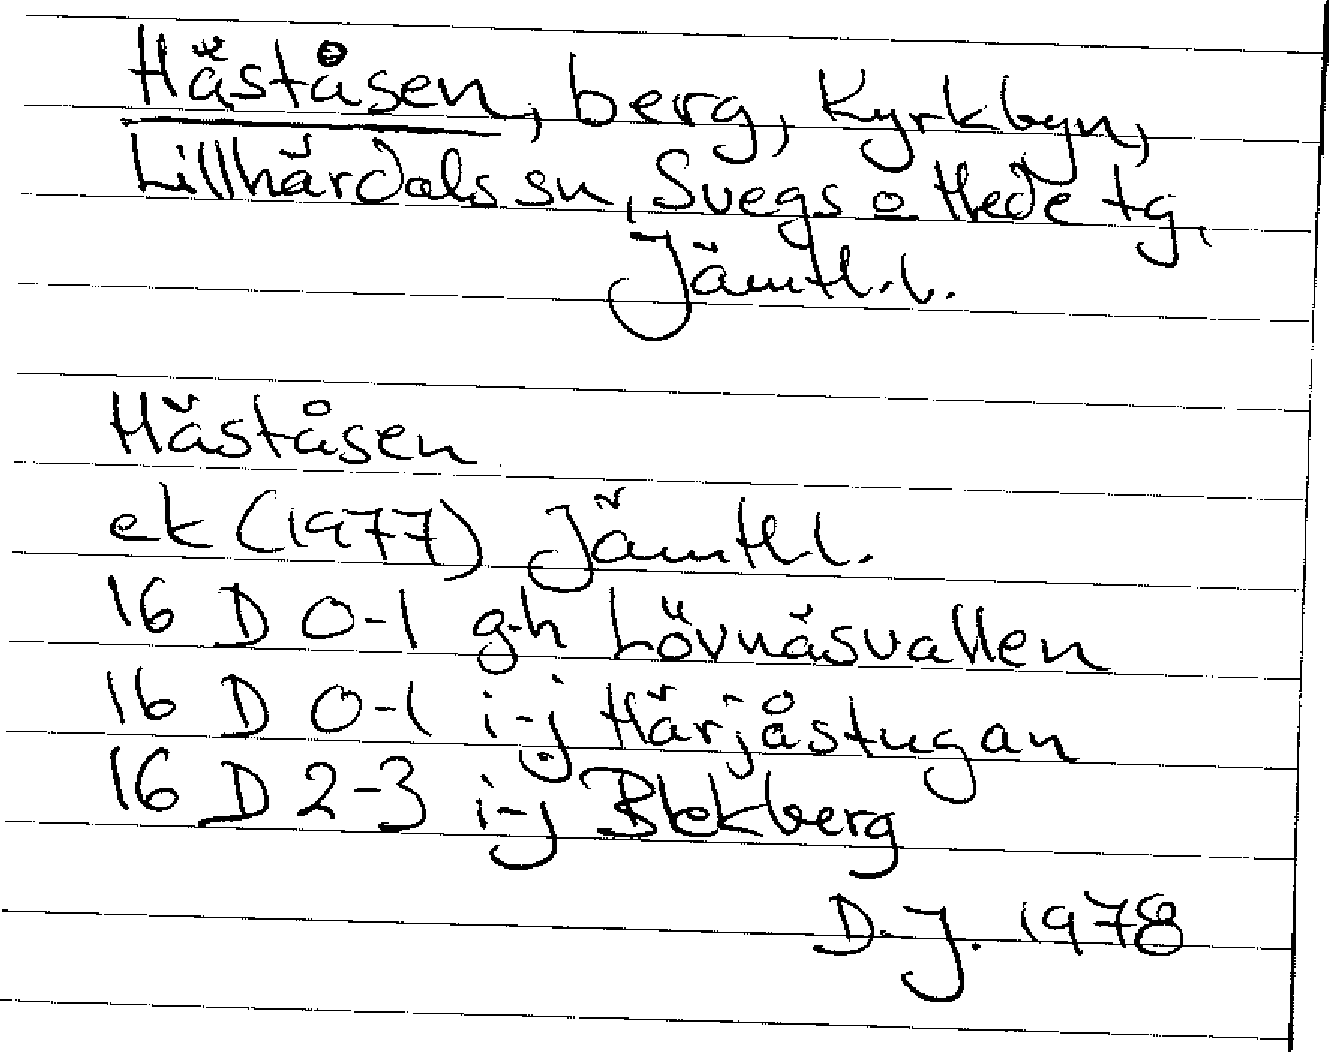 Häståsen, berg, Kyrkbyn,
Lillhärdals sn, Svegs o Hede tg,
Jämtl. l.
Häståsen
ek (1977) Jämtl l.
16 D 0-1 g-h Lövnäsvallen
16 D 0-1 i-j Härjåstugan
16 D 2-3 i-j Blekberg
D. J. 1978